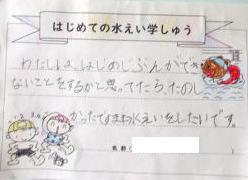 はじめての水えい学しゅう
わたしは、はじめじぶんができ
ないことをするかと思ってたら、たのし
かったですまた水えいをしたいです。
名前(
)